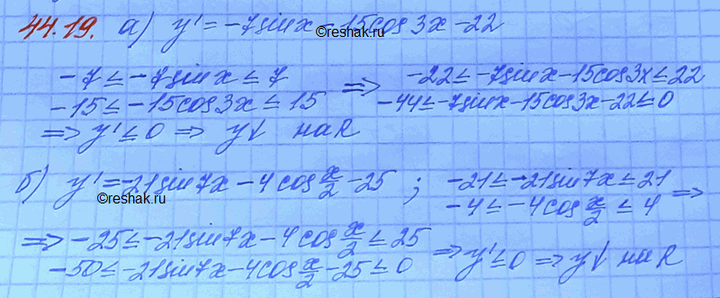 44.19. а) y' = -7sinx - 15cos3x - 22
©reshak.ru
-7 ≤ -7sinx ≤ 7 => -22 ≤ -7sinx - 15cos3x ≤ 22
-15 ≤ -15cos3x ≤ 15 -44 ≤ -7sinx - 15cos3x - 22 ≤ 0
=> y' ≤ 0 => y↓ на R
б) y' = -21sin7x - 4cos x/2 - 25 ; -21 ≤ -21sin7x ≤ 21
©reshak.ru
-4 ≤ -4cos x/2 ≤ 4 =>
=> -25 ≤ -21sin7x - 4cos x/2 ≤ 25
-50 ≤ -21sin7x - 4cos x/2 - 25 ≤ 0 => y' ≤ 0 => y↓ на R